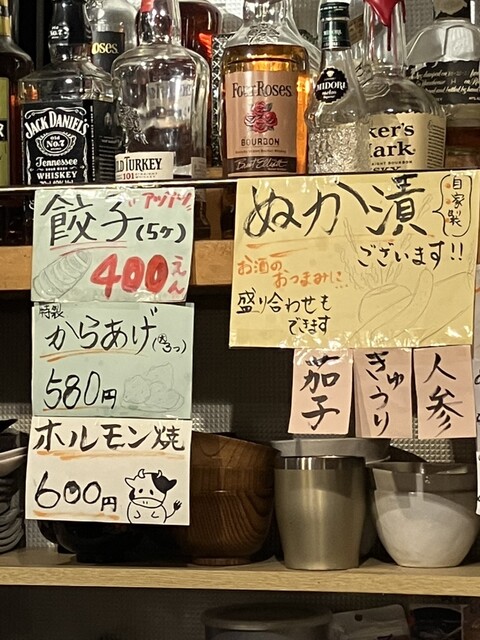 JACK DANIEL'S
OLD No.7
Tennessee
WHISKEY
Roses
TURKEY
101
Four Roses
BOURBON
MIDORI
ker's
ark
餃子(5ケ)
アツアツ
400えん
特製
からあげ
580円
ホルモン焼
600円
自家製
ぬか漬
ございます!!
お酒の
おつまみに..
盛り合わせも
できます
茄子
きゅうり
人参